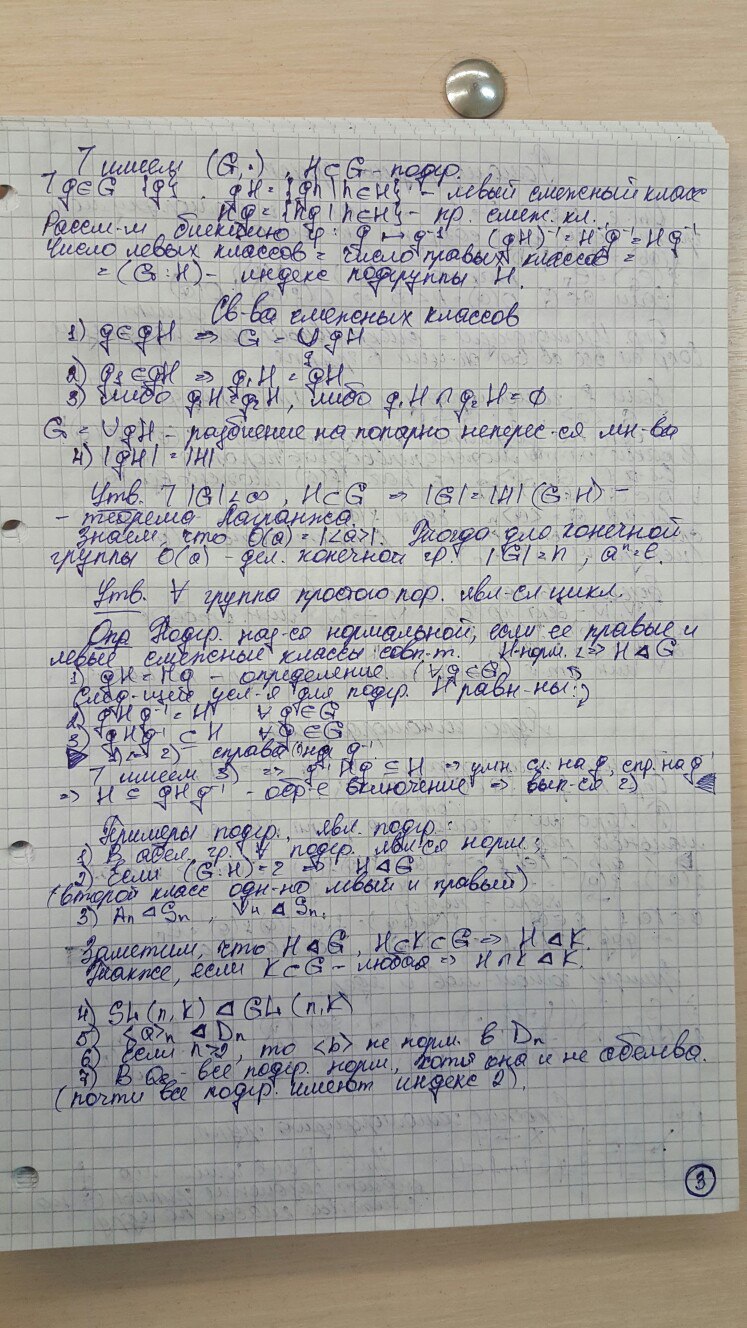 7 имеем (G,·), H⊂G - подгр.
7 g∈G {g} gH = {gh | h∈H} - левый смежный класс
Hg = {hg | h∈H} - пр. смеж. кл.
Рассм-м биекцию φ: g ↦ g⁻¹ (gH)⁻¹ = H⁻¹g⁻¹ = Hg⁻¹
Число левых классов = число правых классов =
= (G:H) - индекс подгруппы H.
Св-ва смежных классов
1) g∈gH ⇒ G = ∪ gH
g
2) g₁∈gH ⇒ g₁H = gH
3) либо g₁H=g₂H, либо g₁H ∩ g₂H = ∅
G = ∪gH - разбиение на попарно неперес-ся мн-ва
4) |gH| = |H|
Утв. 7 |G|<∞, H⊂G ⇒ |G|=|H|(G:H) -
- теорема Лагранжа.
Знаем, что O(a) = |<a>|. Тогда для конечной
группы O(a) - дел. конечной гр. |G|=n, aⁿ=e.
Утв. ∀ группа простого пор. явл-ся цикл.
Опр Подгр. наз-ся нормальной, если её правые и
левые смежные классы совп-т. H-норм. ⇔ H⊲G
1) gH = Hg - определение. (∀g∈G)
След-щие усл-я для подгр. H равн-ны:
2) gHg⁻¹ = H ∀g∈G
3) gHg⁻¹ ⊆ H ∀g∈G
1) ⇔ 2) справа на g⁻¹
7 имеем 3) ⇒ g⁻¹Hg ⊆ H ⇒ умн. сл. на g, спр. на g⁻¹
⇒ H ⊆ gHg⁻¹ - обр-е включение ⇒ вып-ся 2)
Примеры подгр., явл. подгр.:
1) В абел. гр. ∀ подгр. явл-ся норм.;
2) Если (G:H)=2 ⇒ H⊲G
(второй класс одн-но левый и правый)
3) Aₙ⊲Sₙ, V₄⊲Sₙ.
Заметим, что H⊲G, H⊂K⊂G ⇒ H⊲K.
Также, если K⊂G - любая ⇒ H∩K⊲K.
4) SL(n,K) ⊲ GL(n,K)
5) <a>ₙ ⊲ Dₙ
6) Если n>2, то <b> не норм. в Dₙ
7) В Q₈ - все подгр. норм., хотя она и не абелева.
(почти все подгр. имеют индекс 2).
3